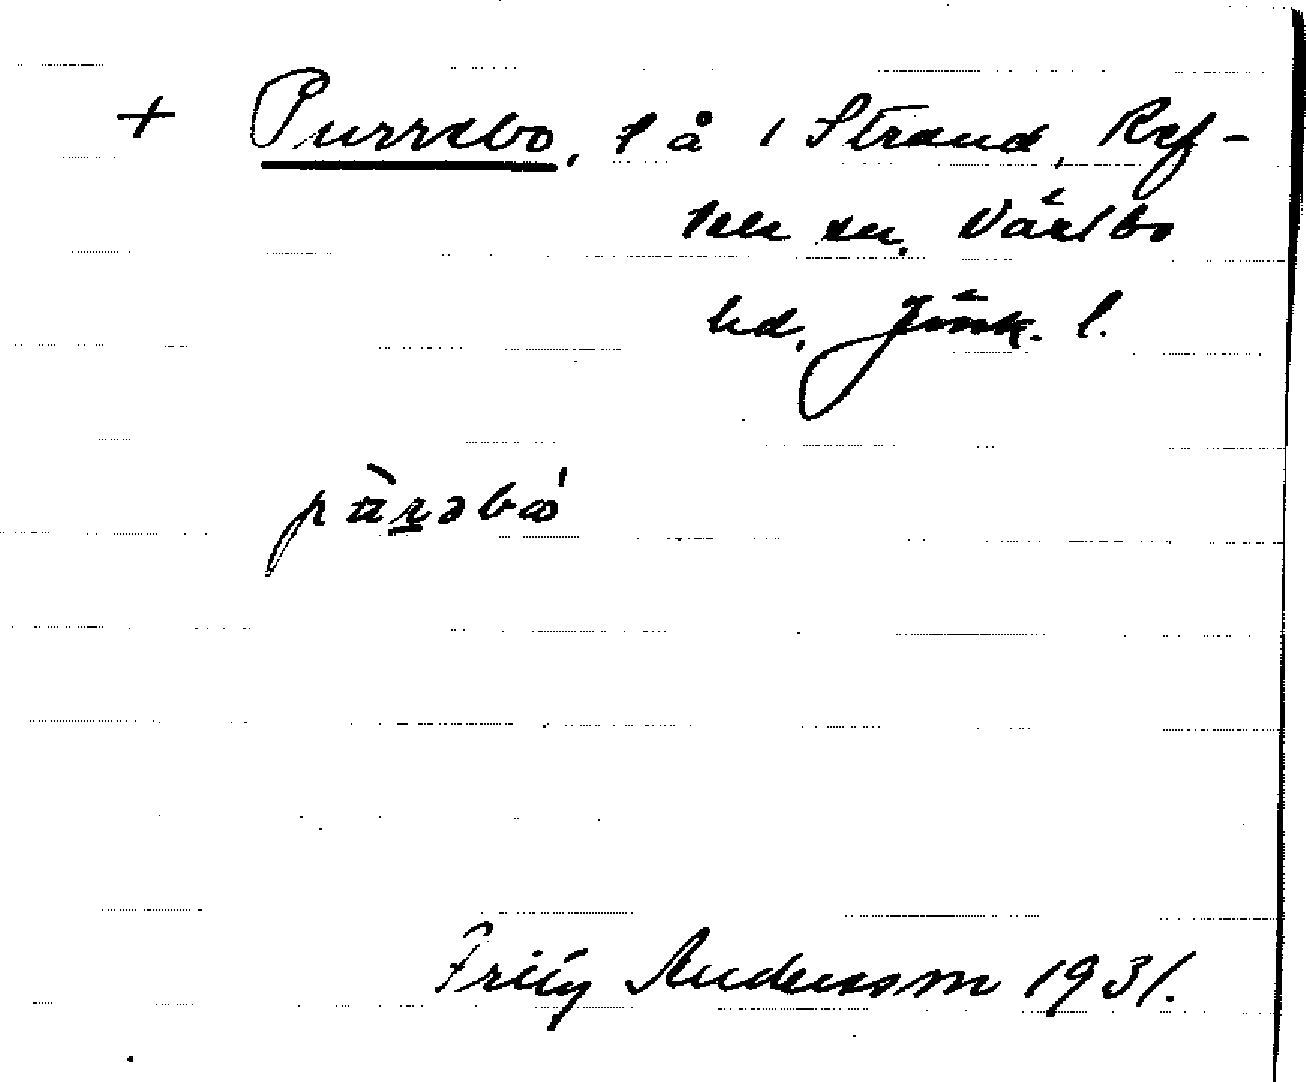 + Purrebo, l å i Strand, Ref-
tele sn. Västbo
hd. Jönk. l.
pàrəbó
Fritz Andersson 1931.